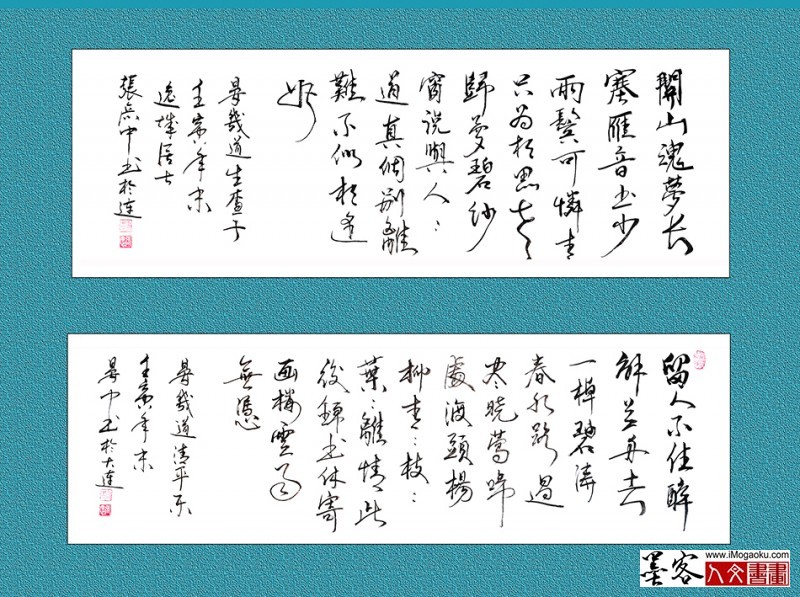 關山魂夢长
塞雁音书少
兩鬢可憐青
只为相思老
歸夢碧纱
窗说與人〻
道真個别離
難不似相逢
好
晏幾道生查子
壬寅年末
居士
張 中书於連
留人不住醉
解兰舟去
一棹碧涛
春水路過
尽晓莺啼
處渡頭楊
柳青〻枝〻
葉〻離情此
後錦书休寄
画樓雲雨
無憑
晏幾道清平乐
壬寅年末
中书於大連
墨客
www.iMogaoku.com
人文書畫